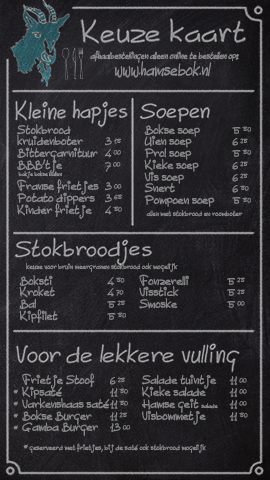 Keuze kaart
afhaalbestellingen alleen online te bestellen ops
www.hamsebok.nl
Kleine hapjes
Stokbrood
kruidenboter 3
Bittergarnituur 4 00
BBB'tje 7 00
Franse frietjes 3 00
Potato dippers 3
Kinder frietje 4 50
Soepen
Bokse soep 5 50
Uien soep 6 25
Prol soep 5 50
Kieke soep 6 25
Vis soep 6 25
Snert 5 50
Pompoen soep 5 50
allen met stokbrood en roomboter
Stokbroodjes
keuze voor bruin meergranen stokbrood ook mogelijk
Boksti 4 50
Kroket 4
Bal 5 25
Kipfilet 5 50
Fonzerelli 5 25
Visstick 5 25
Smoske 5 00
Voor de lekkere vulling
Frietje Stoof 6 25
* Kipsaté 11 50
* Varkenshaas saté 11 50
* Bokse Burger 11 25
* Gamba Burger 13 00
Salade tuintje 11 00
Kieke salade 11 00
Hamse geit salade 11 00
Visbommetje 11 50
* geserveerd met frietjes, bij de saté ook stokbrood mogelijk